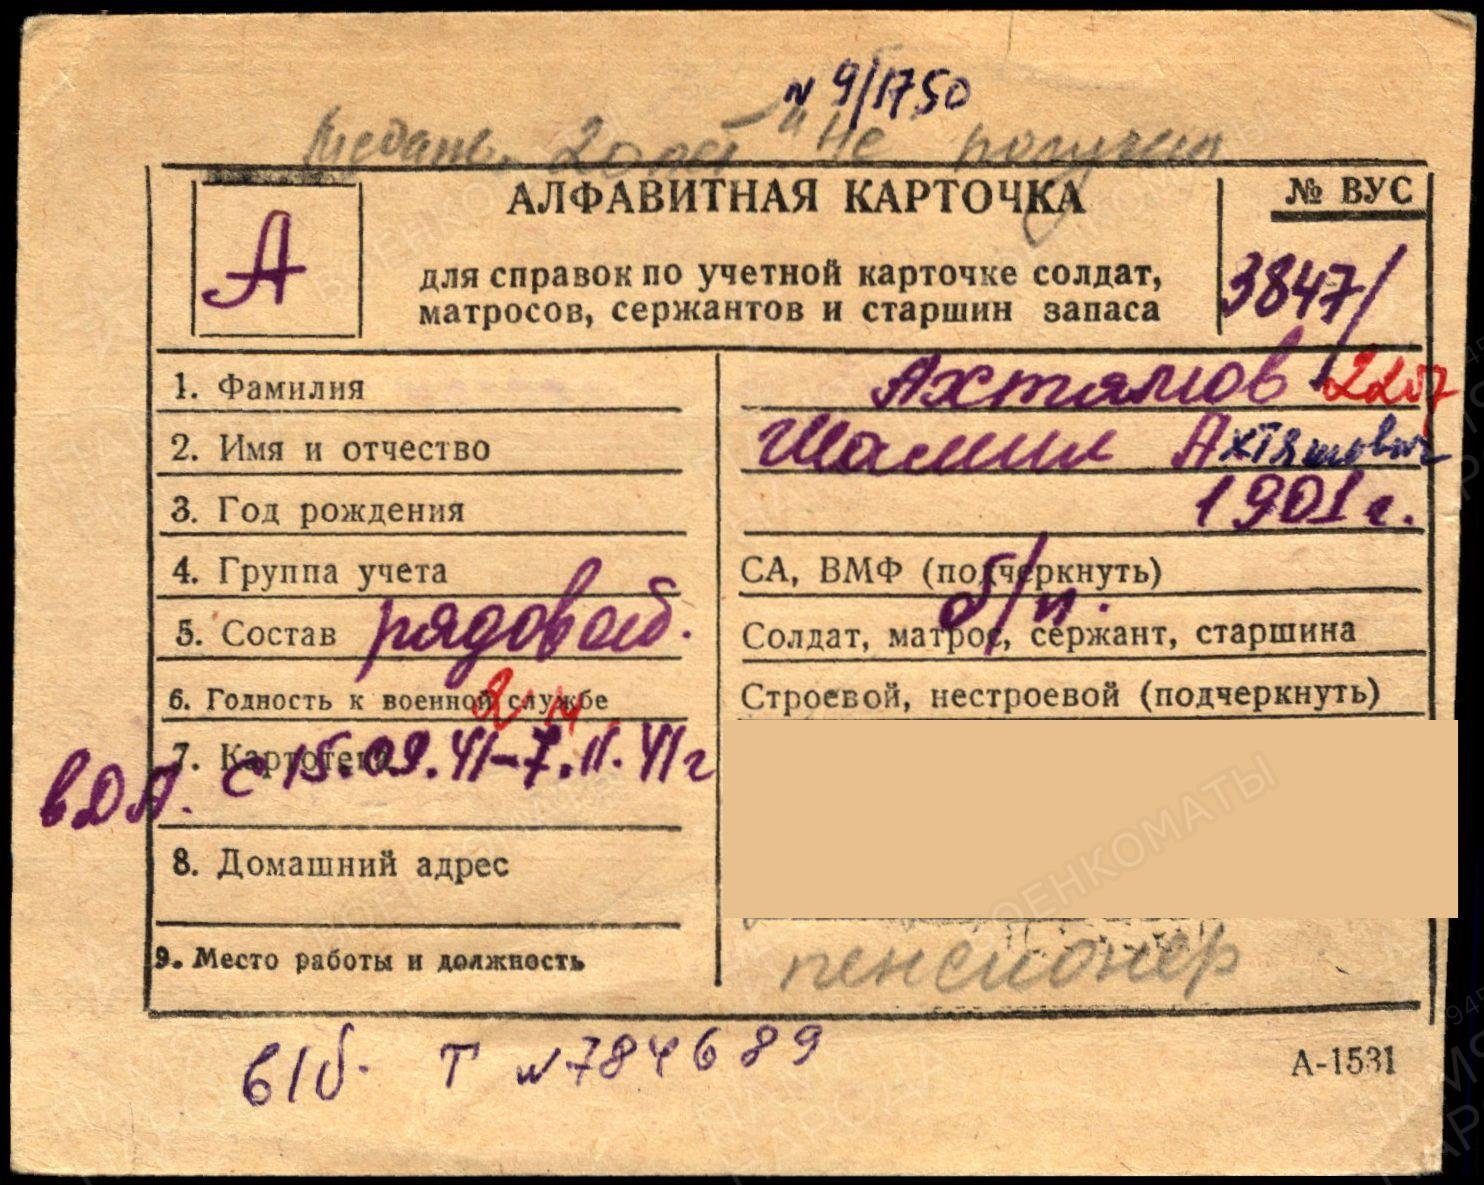 N 9/1750
Медаль "20 лет" не получал
А
АЛФАВИТНАЯ КАРТОЧКА
для справок по учетной карточке солдат,
матросов, сержантов и старшин запаса
№ ВУС
3847/
1. Фамилия Ахтямов
2. Имя и отчество Шамил Ахтямович
3. Год рождения 1901 г.
4. Группа учета СА, ВМФ (подчеркнуть)
б/п.
5. Состав рядовой. Солдат, матрос, сержант, старшина
6. Годность к военной службе Строевой, нестроевой (подчеркнуть)
7. Картотека
в ДА. с 15.09.41-7.11.41 г
8. Домашний адрес
9. Место работы и должность пенсионер
в/б. Т N 784689
А-1531
ВОЕНКОМАТЫ